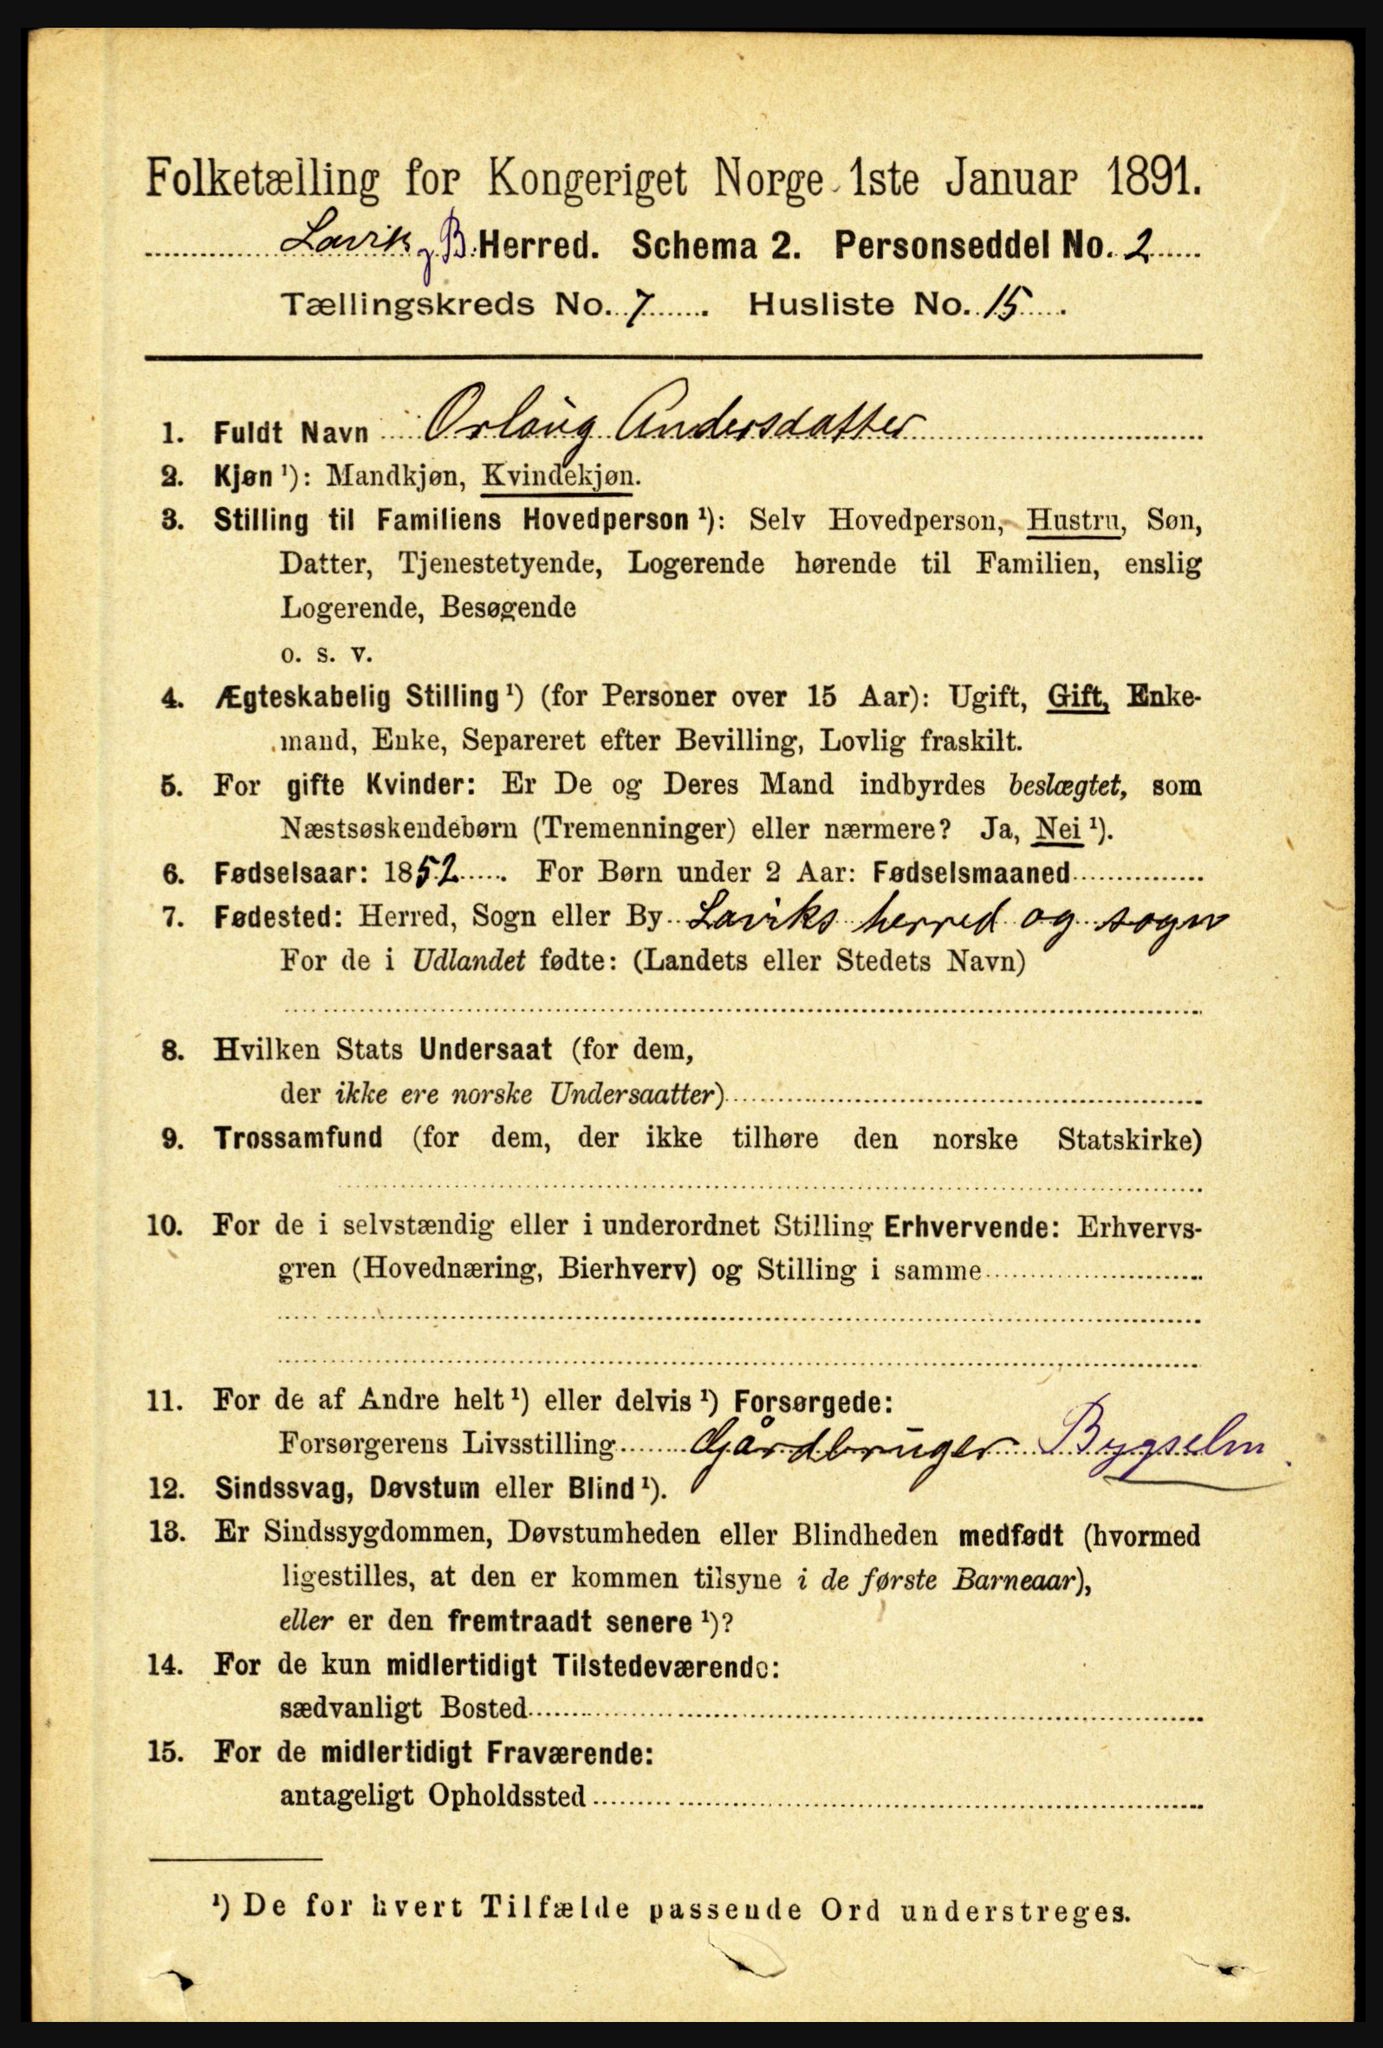 Folketælling for Kongeriget Norge 1ste Januar 1891.
Lavik og B. Herred. Schema 2. Personseddel No. 2
Tællingskreds No. 7. Husliste No. 15.
1. Fuldt Navn Orlaug Andersdatter
2. Kjøn ¹): Mandkjøn, Kvindekjøn.
3. Stilling til Familiens Hovedperson ¹): Selv Hovedperson, Hustru, Søn,
Datter, Tjenestetyende, Logerende hørende til Familien, enslig
Logerende, Besøgende
o. s. v.
4. Ægteskabelig Stilling ¹) (for Personer over 15 Aar): Ugift, Gift, Enke-
mand, Enke, Separeret efter Bevilling, Lovlig fraskilt.
5. For gifte Kvinder: Er De og Deres Mand indbyrdes beslægtet, som
Næstsøskendebørn (Tremenninger) eller nærmere? Ja, Nei ¹).
6. Fødselsaar: 1852. For Børn under 2 Aar: Fødselsmaaned
7. Fødested: Herred, Sogn eller By Laviks herred og sogn
For de i Udlandet fødte: (Landets eller Stedets Navn)
8. Hvilken Stats Undersaat (for dem,
der ikke ere norske Undersaatter)
9. Trossamfund (for dem, der ikke tilhøre den norske Statskirke)
10. For de i selvstændig eller i underordnet Stilling Erhvervende: Erhvervs-
gren (Hovednæring, Bierhverv) og Stilling i samme
11. For de af Andre helt ¹) eller delvis ¹) Forsørgede:
Forsørgerens Livsstilling Gårdbruger Bygselm
12. Sindssvag, Døvstum eller Blind ¹).
13. Er Sindssygdommen, Døvstumheden eller Blindheden medfødt (hvormed
ligestilles, at den er kommen tilsyne i de første Barneaar),
eller er den fremtraadt senere ¹)?
14. For de kun midlertidigt Tilstedeværende:
sædvanligt Bosted
15. For de midlertidigt Fraværende:
antageligt Opholdssted
¹) De for hvert Tilfælde passende Ord understreges.